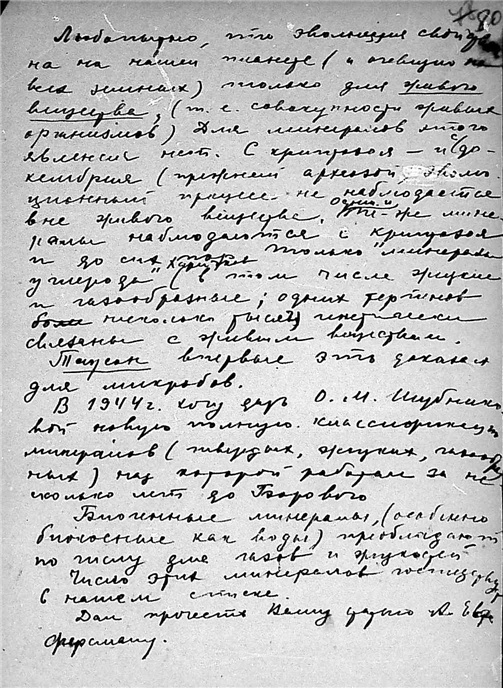 Любопытно, что эволюция свойстве
на на нашей планете (и очевидно на
всех земных) только для живого
вещества, (т. е. совокупности живых
организмов) Для минералов этого
явления нет. С криптозоя – и с до-
кембрия (прежней археозой эволю-
ционный процесс не наблюдается
вне живого вещества. Одни и те-же мине
ралы наблюдаются с криптозоя
и до сих пор только "минералы
углерода" (в том числе жидкие
и газообразные; одних
несколько тысяч генетически
связаны с живым веществом.
Таусон впервые это доказал
для микробов.
В 1944 г. хочу дать О. М. Шубнико
вой новую полную классификацию
минералов (твердых, жидких, газообраз
ных) над которой работал за не
сколько лет до Борового
Биогенные минералы, (особенно
биокосные как воды) преобладают
по числу для газов и жидкостей
Число этих минералов господствует
в нашем списке.
Дал прочесть Вашу А. Евг
Ферсману.